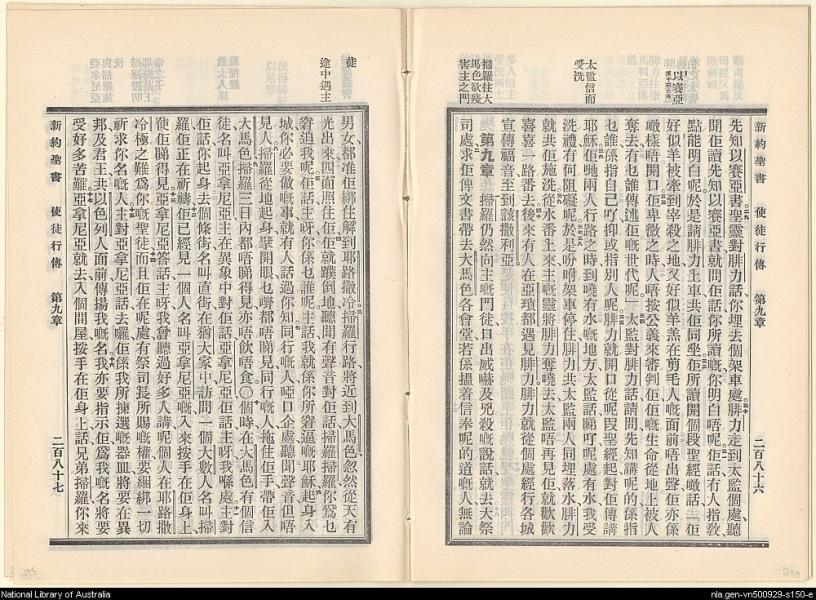 新約聖書　使徒行傳　第九章　二百八十六
以賽亞
太監信而
受洗
掃羅往大
馬色欲殘
害主之門
先知以賽亞書聖靈對腓力話你埋去個架車處腓力走到太監個處聽
聞佢讀先知以賽亞書就問佢話你所讀嘅你明白唔呢佢話冇人指教
點能明白呢於是請腓力上車共佢同坐佢所讀開個段聖經嗽話「佢
好似羊被牽到宰殺之地又好似羊羔在剪毛人嘅面前唔出聲佢亦係
噉樣唔開口佢卑微之時人唔按公義來審判佢佢嘅生命從地上被人
奪去有乜誰傳述佢嘅世代呢」太監對腓力話請問先知講呢的係指
乜誰係指自己吖抑或指別人呢腓力就開口從呢段聖經起對佢傳講
耶穌佢哋兩人行路之時到嘵有水嘅地方太監話睇吓呢處有水我受
洗禮有何阻礙呢於是吩咐架車停住腓力共太監兩人同埋落水腓力
就共佢施洗從水番上來主嘅靈將腓力奪嘵去太監唔再見佢就歡歡
喜喜一路番去後來有人在亞瑣都遇見腓力腓力就從個處經行各城
宣傳福音至到該撒利亞
第九章　掃羅仍然向主嘅門徒口出威嚇及兇殺嘅說話就去大祭
司處求佢俾文書帶去大馬色各會堂若係搵着信奉呢的道嘅人無論
徒
途中遇主
男女都准佢綁住解到耶路撒冷掃羅行路將近到大馬色忽然從天有
光出來四面照住佢佢就蹼倒地聽聞有聲音對佢話掃羅掃羅你爲乜
窘迫我呢佢話主呀你係乜誰呢主話我就係你所窘逼嘅耶穌起身入
城你必要做嘅事就有人話過你知同行嘅人啞口企處聽聞聲音但唔
見人掃羅從地起身擘開眼乜嘢都唔睇見同行嘅人拖住佢手帶佢入
大馬色掃羅三日內都唔睇得見亦唔飲唔食〇個時在大馬色有個信
徒名叫亞拿尼亞主在異象中對佢話亞拿尼亞佢話主呀我喺處主對
佢話你起身去個條街名叫直街在猶大家中訪問一個大數人名叫掃
羅佢正在祈禱佢已經見一個人名叫亞拿尼亞嘅入來按手在佢身上
使佢睇得見亞拿尼亞答話主呀我曾聽過好多人講呢個人在耶路撒
冷極之難爲你嘅聖徒而且佢在呢處有祭司長所賜嘅權要綑綁一切
祈求你名嘅人主對亞拿尼亞話去囉佢係我所揀選嘅器皿將要在異
邦及君王共以色列人面前傳揚我嘅名我亦要指示佢爲我嘅名將要
受好多苦難亞拿尼亞就去入個間屋按手在佢身上話兄弟掃羅你來
新約聖書　使徒行傳　第九章　二百八十七
National Library of Australia
nla.gen-vn500929-s150-e